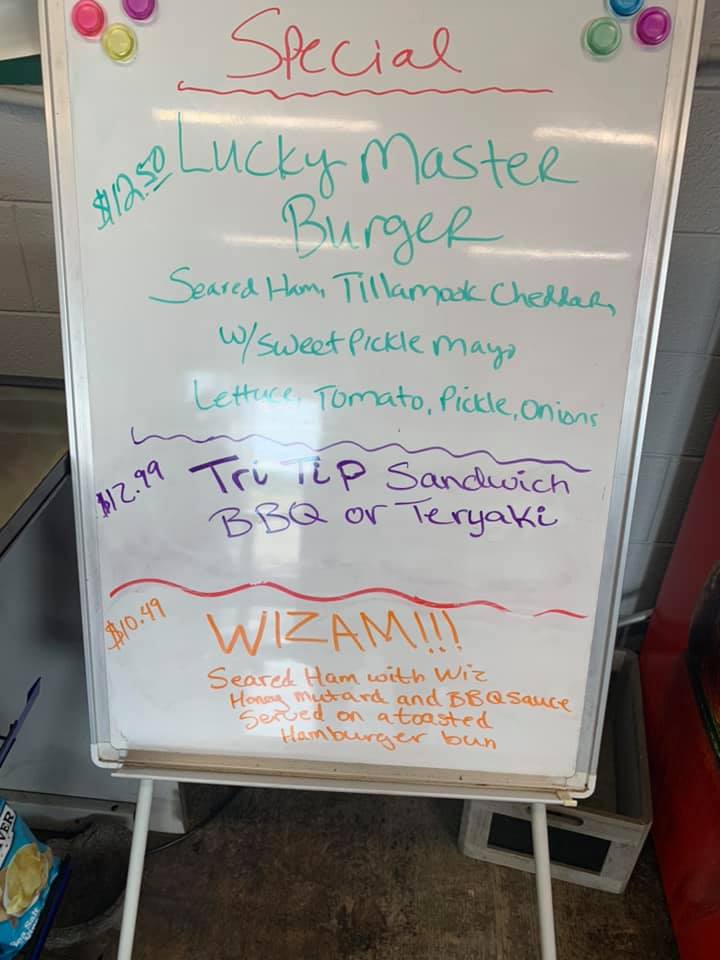 Special
$12.50 Lucky Master
Burger
Seared Ham, Tillamook Cheddar,
w/sweet Pickle mayo
Lettuce, Tomato, Pickle, onions
$12.99 Tri Tip Sandwich
BBQ or Teryaki
$10.49 WIZAM!!!
Seared Ham with Wiz
Honey mutard and BBQ sauce
Served on a toasted
Hamburger bun
VER
Sea Salt